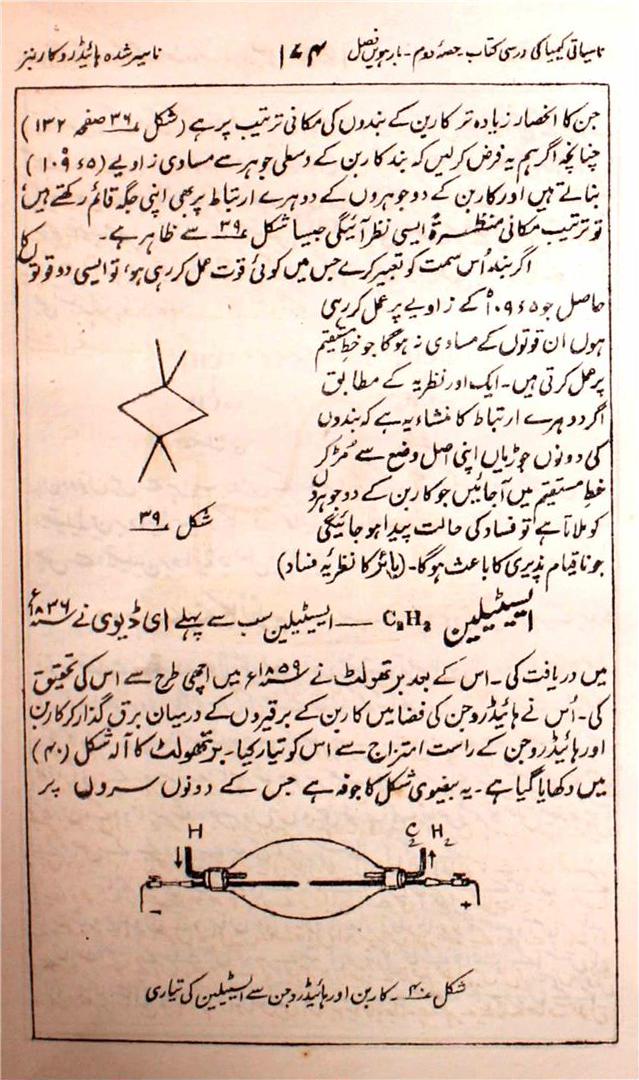 نامیاتی کیمیا کی درسی کتاب ۔ حصۂ دوم ۔ بارہویں فصل ۱۷۴ ناسیر شدہ ہائیڈروکاربنز
جن کا انحصار زیادہ تر کاربن کے بندوں کی مکانی ترتیب پر ہے (شکل ۳۶ صفحہ ۱۳۲)
چنانچہ اگر ہم یہ فرض کرلیں کہ بند کاربن کے وسطی جوہر سے مساوی زاویے (۱۰۹٫۵°)
بناتے ہیں اور کاربن کے دو جوہروں کے دوہرے ارتباط پر بھی اپنی جگہ قائم رکھتے ہیں،
تو ترتیب مکانی منظرۃً ایسی نظر آئیگی جیسا شکل ۳۹ سے ظاہر ہے۔
اگر بند اُس سمت کو تعبیر کرے جس میں کوئی قوت عمل کر رہی ہو، تو ایسی دو قوتوں کا
حاصل جو ۱۰۹٫۵° کے زاویے پر عمل کر رہی
ہوں ان قوتوں کے مساوی نہ ہوگا جو خطِ مستقیم
پر عمل کرتی ہیں۔ ایک اور نظریہ کے مطابق
اگر دوہرے ارتباط کا منشاء یہ ہے کہ بندوں
کی دونوں جوڑیاں اپنی اصل وضع سے مُڑ کر
خطِ مستقیم میں آجائیں جو کاربن کے دو جوہروں
کو ملاتا ہے تو فساد کی حالت پیدا ہو جائیگی
شکل ۳۹
جو ناقیام پذیری کا باعث ہوگا۔ (بائر کا نظریۂ فساد)
ایسیٹیلین C₂H₂ — ایسیٹیلین سب سے پہلے ای ڈیوی نے ۱۸۳۶ء
میں دریافت کی۔ اس کے بعد برتھولٹ نے ۱۸۵۹ء میں اچھی طرح سے اس کی تحقیق
کی۔ اُس نے ہائیڈروجن کی فضا میں کاربن کے برقیروں کے درمیان برق گذار کر کاربن
اور ہائیڈروجن کے راست امتزاج سے اس کو تیار کیا۔ برتھولٹ کا آلہ شکل (۴۰)
میں دکھایا گیا ہے۔ یہ بیضوی شکل کا جوفہ ہے جس کے دونوں سروں پر
H C₂H₂
− +
شکل ۴۰۔ کاربن اور ہائیڈروجن سے ایسیٹیلین کی تیاری